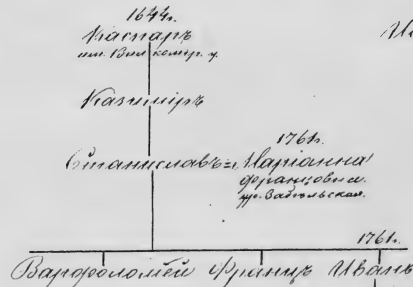 1644г.
Каспаръ
им. Вил комер. у.
Казимiръ
1761г.
Станиславъ = Марiанна
Францовна
ур. Забѣльская.
1761г.
Варфоломей Францъ Иванъ